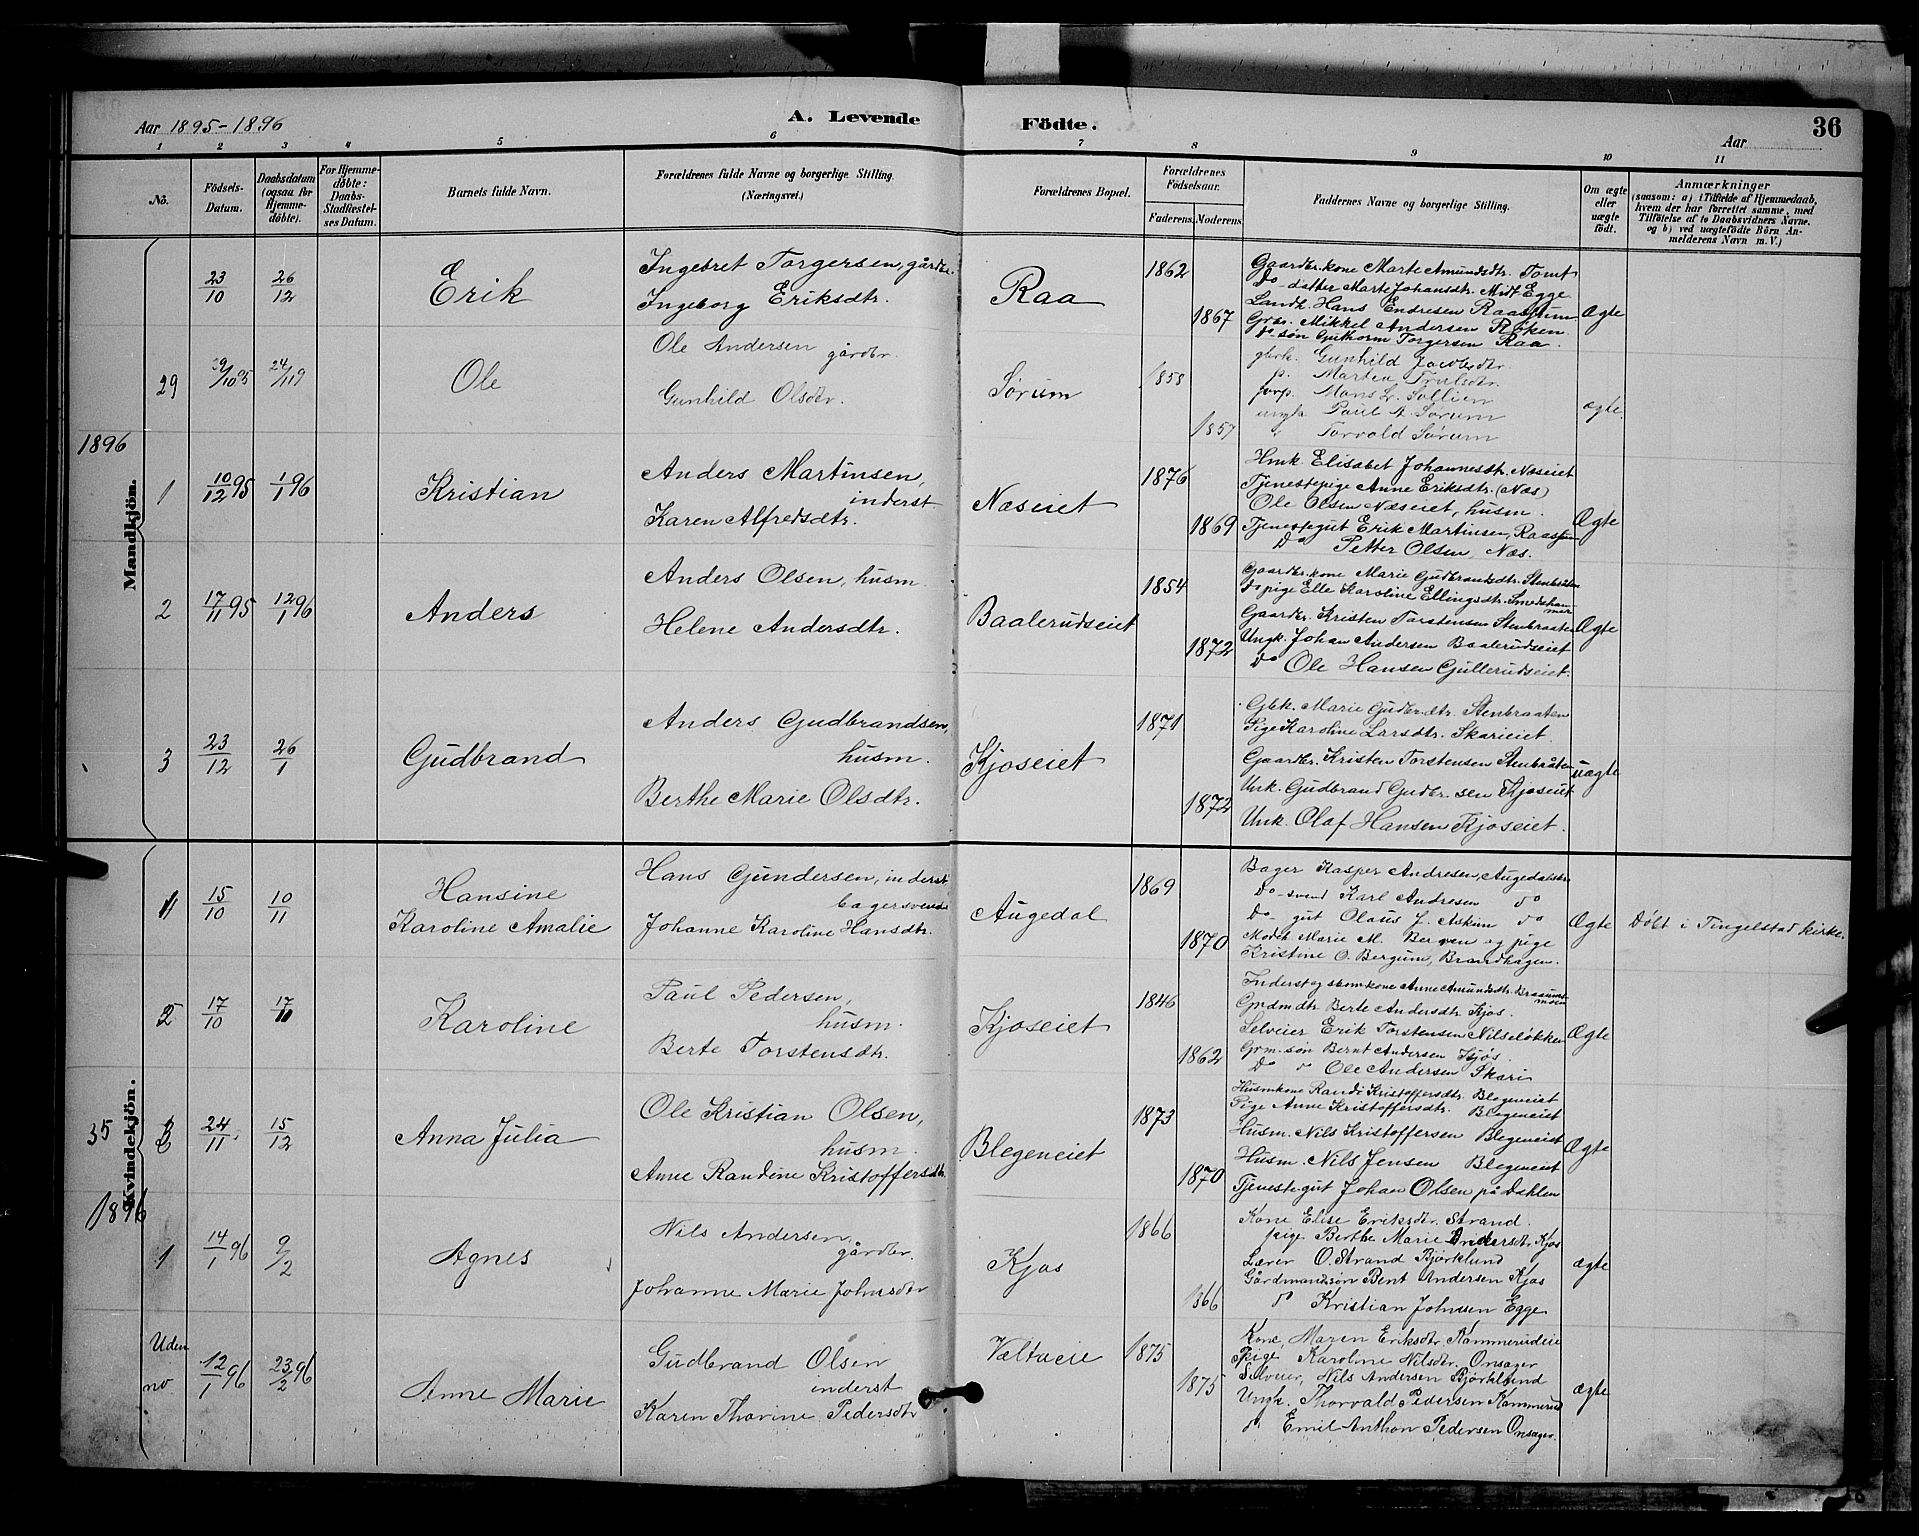 Aar 1895-1896
A. Levende Födte.
Aar
36
1 2 3 4 5 6 7 8 9 10 11
No.
Födsels-Datum.
Daabsdatum (ogsaa for Hjemmedöbte).
For Hjemmedöbte: Daabs-Stadfæstelses Datum.
Barnets fulde Navn.
Forældrenes fulde Navne og borgerlige Stilling. (Næringsvei.)
Forældrenes Bopæl.
Forældrenes Födselsaar.
Faderens. Moderens.
Faddernes Navne og borgerlige Stilling.
Om ægte eller uægte født.
Anmærkninger
(saasom: a) i Tilfælde af Hjemmedaab, hvem der har forrettet samme, med Tilføielse af to Daabsvidners Navne, og b) ved uægtefödte Börn Anmelderens Navn m. V.)
Mandkjön.
23/10 26/12
Erik
Ingebret Torgersen, gårdbr.
Ingeborg Eriksdtr.
Raa
1862
1867
Gaardbr. kone Marte Amundsdtr. Tomt
Do - datter Marte Johansdtr. Midt Egge
Landh. Hans Endresen Raassum
Gbr. Mikkel Andersen Røken
Do søn Guthorm Torgersen Raa.
Ægte
29
Ole
Ole Andersen gårdbr.
Gunhild Olsdtr.
Sørum
1858
1857
Gunhild Jacobsdtr
p. Martea Trulsdtr.
Hans L. Sollien
ungk. Paul A. Sørum
" Torvald Sørum
ægte.
1896
1 10/12 95 1/1 96
Kristian
Anders Martinsen,
inderst
Karen Alfredsdtr.
Næseiet
1876
1869
Hmk. Elisabet Johannesdtr. Næseiet
Tjenestepige Anne Eriksdtr. (Næs)
Ole Olsen Næseiet, husm.
Tjenestegut Erik Martinsen, Raassum
Do Petter Olsen, Næs.
Ægte
2 17/11 95 12/1 96
Anders
Anders Olsen, husm.
Helene Andersdtr.
Baalerudseiet
1854
1872
Gaardbr. kone Marie Gudbrandsdtr. Stenbråten
Do pige Elle Karoline Ellingsdtr. Smedshammer
Gaardbr. Kristen Torstensen Stenbraaten
Ungk. Johan Andersen Baalerudseiet
Do Ole Hansen Gullerudseiet.
Ægte
3 23/12 26/1
Gudbrand
Anders Gudbrandsen,
husm.
Berthe Marie Olsdtr.
Kjoseiet
1871
1872
Gbk. Marie Gudbr.dtr. Stenbraaten
Pige Karoline Larsdtr. Skarieiet.
Gaardbr. Kristen Torstensen Stenbråten
Unk. Gudbrand Gudbr.sen Kjoseiet
Unk. Olaf Hansen Kjoseiet.
uægte
Kvindekjön.
15/10 10/11
Hansine
Karoline Amalie
Hans Gundersen, inderst
bagersvend
Johanne Karoline Hansdtr.
Augedal
1869
1870
Bager Kasper Andresen, Augedalsbr
Do - svend Karl Andresen do
Do - gut Olaus J. Askim do
Modeh. Marie M. Bergen og pige
Kristine O. Bergum, Brandhagen.
Ægte
Döbt i Tingelstad kirke.
2 17/10 17/11
Karoline
Paul Pedersen,
husm.
Berte Torstensdtr.
Kjoseiet
1846
1862
Inderst og skomkone Anne Amundsdtr. Braaumsmoen
Grdmdtr. Berte Andersdtr. Kjos.
Selveier Erik Torstensen Nilseløkken
Grm.søn Bernt Andersen Kjøs.
Do " Ole Andersen Skari
Ægte
35
3 24/11 15/12
Anna Julia
Ole Kristian Olsen,
husm.
Anne Randine Kristoffersdtr.
Blegeneiet
1873
1870
Husmkone Randi Kristoffersdtr. Blegeneiet
Pige Anne Kristoffersdtr. Blegeneiet
Husm. Nils Kristoffersen Blegeneiet
Husm. Nils Jensen Blegeneiet
Tjenestegut Johan Olsen på Dahlen
Ægte
1896
1 14/1 96 9/2
Agnes
Nils Andersen,
gårdbr.
Johanne Marie Johnsdtr
Kjos
1866
1866
Kone Elise Eriksdtr. Strand.
pige Berthe Marie Andersdtr. Kjos
Lærer O. Strand Bjørklund
Gårdmandssøn Bent Andersen Kjos
do Kristian Johnsen Egge
ægte
Uden no 12/1 96 23/2 96
Anne Marie
Gudbrand Olsen
inderst
Karen Thorine Pedersdtr
Væltaeie
1875
1875
Kone, Maren Eriksdtr. Kammerudeie
Pige Karoline Nilsdtr. Onsager
Selveier, Nils Andersen Bjørklund
Ungk. Thorvald Pedersen Kammerud
do Emil Anthon Pedersen Onsager.
ægte